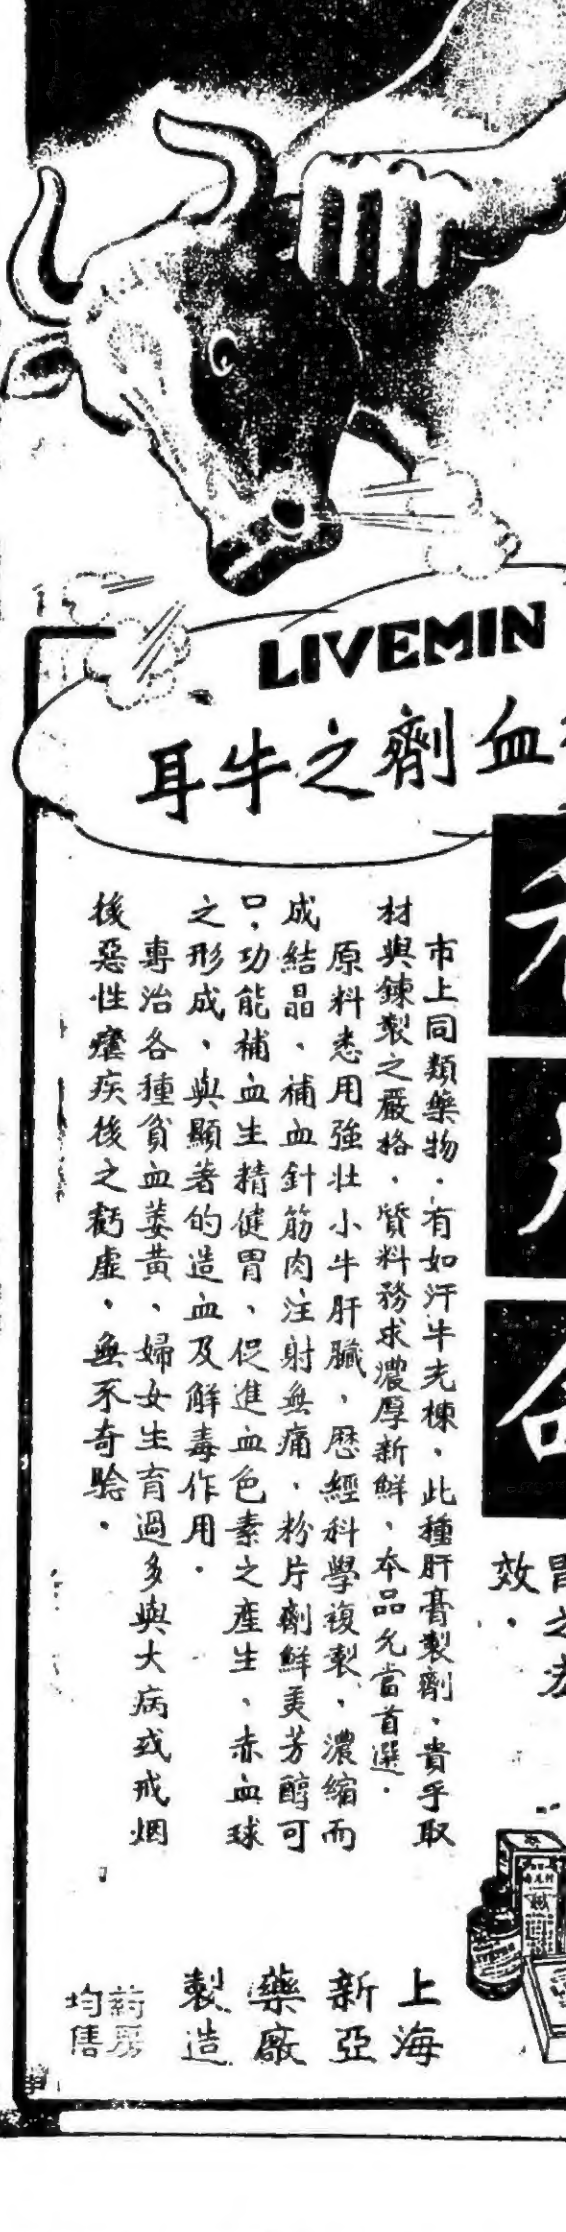 LIVEMIN
血劑之牛耳
效。
市上同類藥物，有如汗牛充棟，此種肝膏製劑，貴乎取
材與鍊製之嚴格，質料務求濃厚新鮮，本品允當首選。
原料悉用強壯小牛肝臟，歷經科學複製，濃縮而
成結晶，補血針筋肉注射無痛，粉片劑鮮美芳醇可
口，功能補血生精健胃，促進血色素之產生，赤血球
之形成，與顯著的造血及解毒作用。
專治各種貧血萎黃，婦女生育過多與大病或戒烟
後惡性瘧疾後之虧虛，無不奇驗。
上海
新亞
藥廠
製造
药房
均售